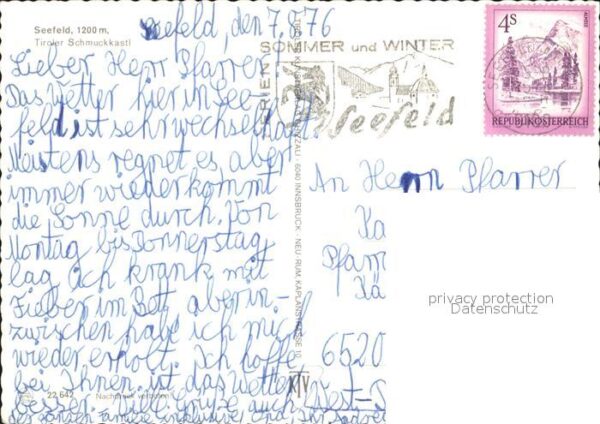 Seefeld, 1200 m,
Tiroler Schmuckkastl
Seefeld, den 7.8.76
Lieber Herr Pfarrer
Das Wetter hier in See-
feld ist sehr wechselhaft.
Mastens regnet es, aber
immer wieder kommt
die Sonne durch. Von
Montag bis Donnerstag
lag ich krank mit
Fieber im Bett, aber in-
zwischen habe ich mich
wieder erholt. Ich hoffe
bei Ihnen ist das Wetter
besser. Viele Grüße auch
der ganzen Familie
22.642 Nachdruck verboten
6040 INNSBRUCK - NEU-RUM, KAPLANSTRASSE 10
KTV
FERIEN
SOMMER und WINTER
Seefeld
4S
REPUBLIK ÖSTERREICH
An Herrn Pfarrer
Ka
Pfarr
Kä
6520
West-
privacy protection
Datenschutz